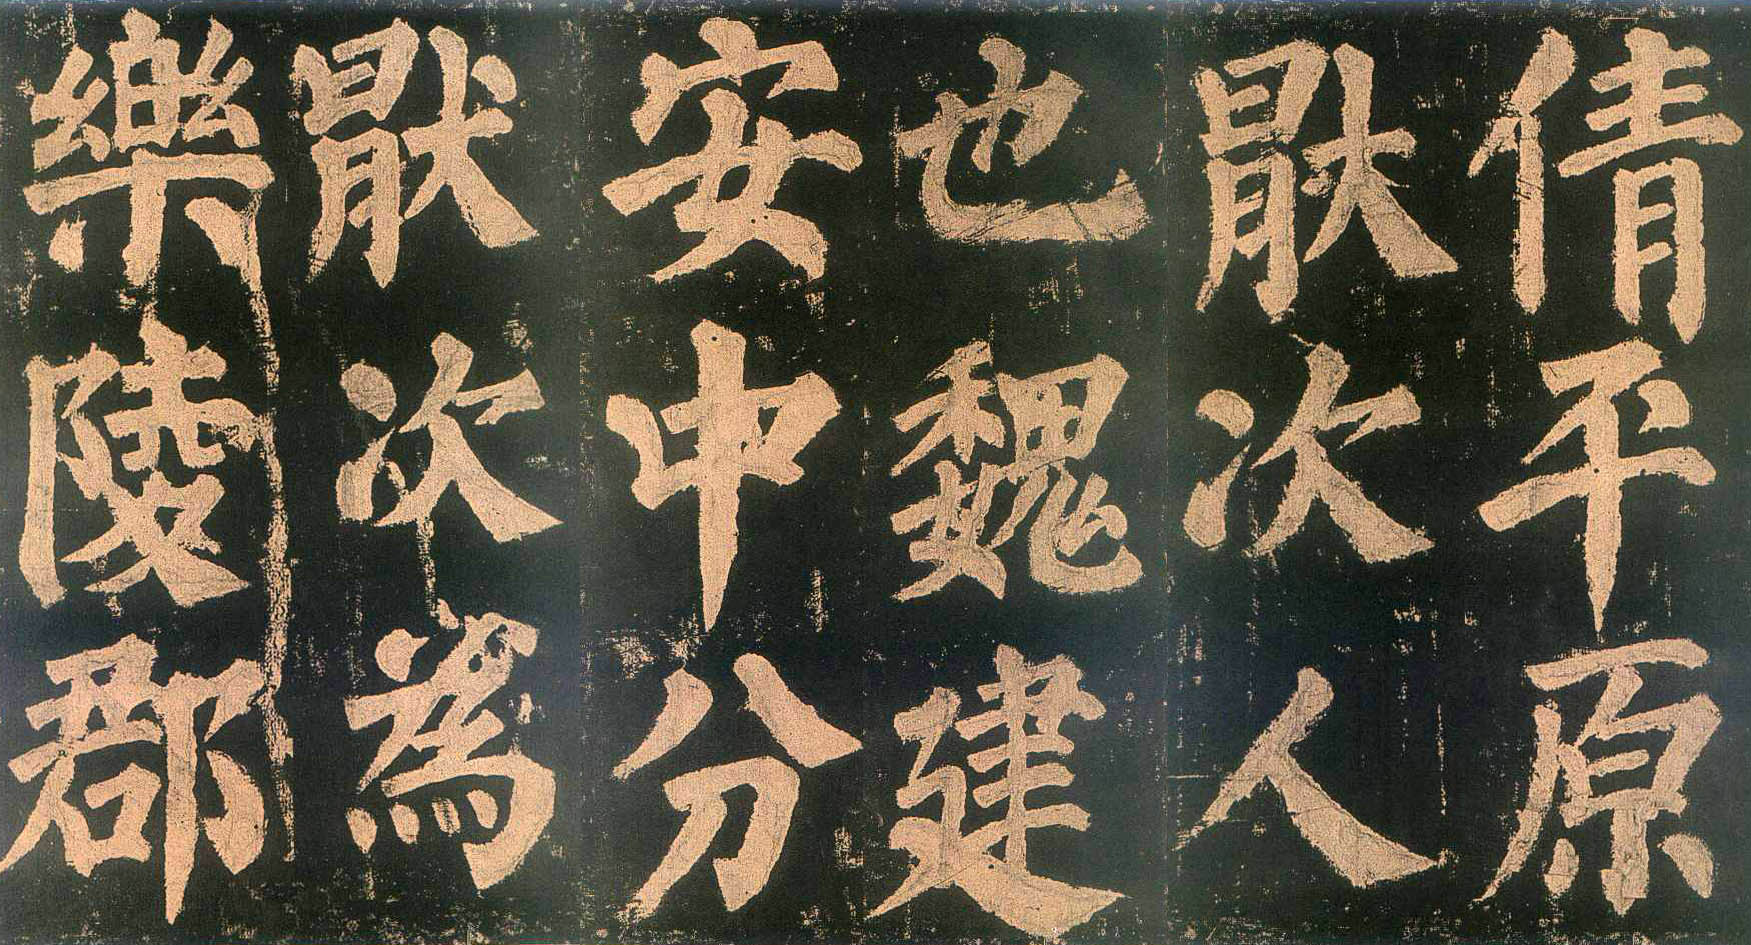 倩平原
厭次人
也魏建
安中分
厭次為
樂陵郡